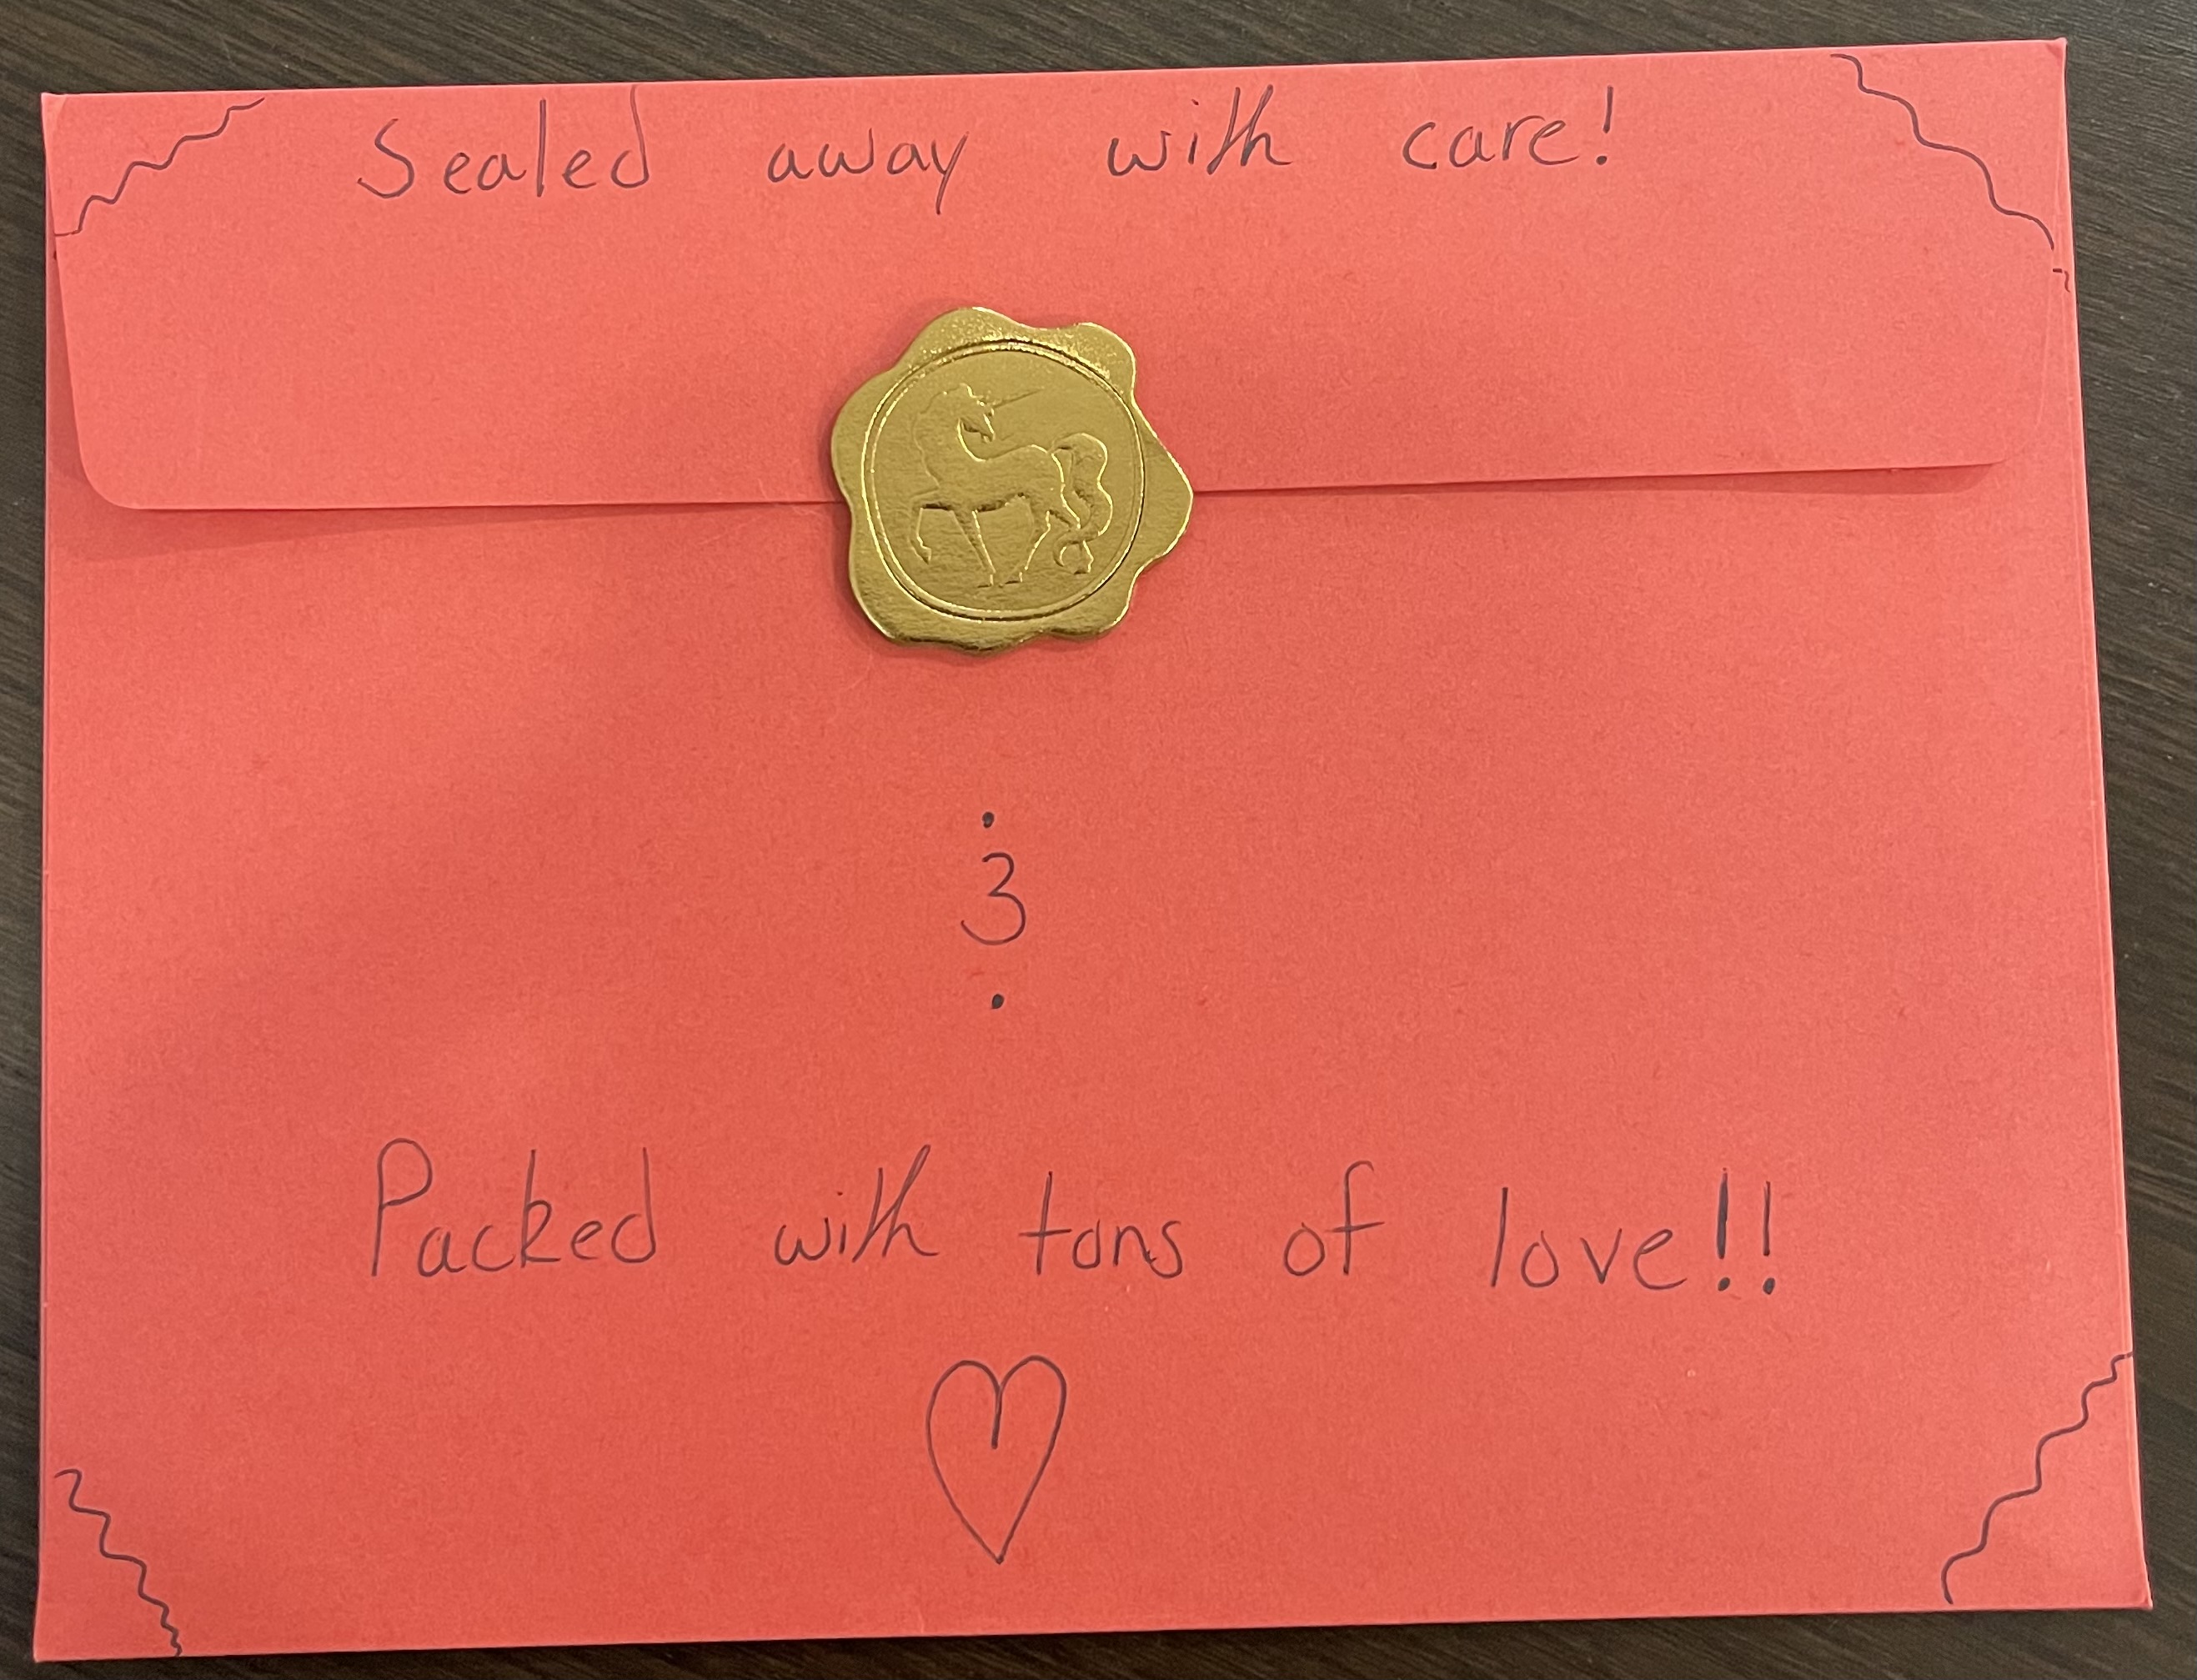 Sealed away with care!
.
3
.
Packed with tons of love!!